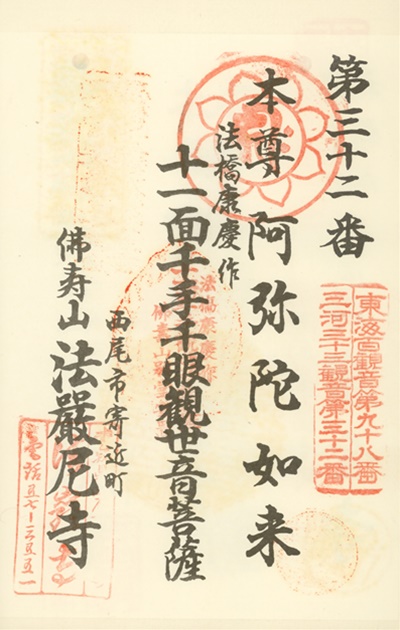 第三十二番
東海百観音第九十八番
三河三十三観音第三十二番
本尊 阿弥陀如来
法橋康慶作
十一面千手千眼観世音菩薩
西尾市寄近町
佛寿山 法嚴尼寺